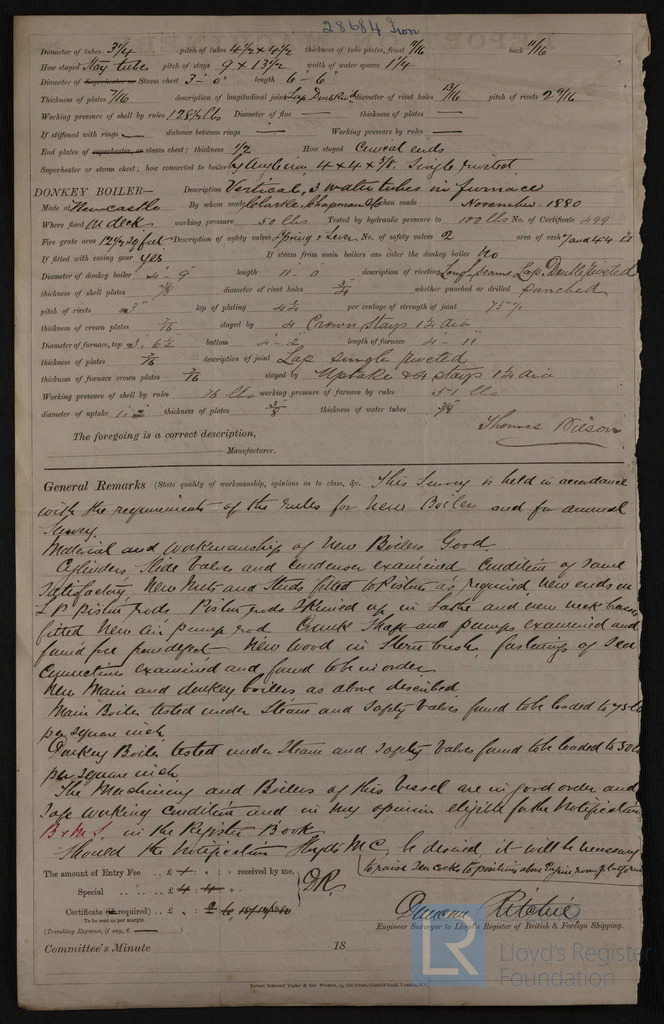 28684 Iron
Diameter of tubes 3 1/4 pitch of tubes 4 1/2 x 4 1/2 thickness of tube plates, front 11/16 back 11/16
How stayed Stay tubes pitch of stays 9 x 13 1/2 width of water spaces 1 1/4
Diameter of Superheater or Steam chest 3'-0" length 6'-6"
Thickness of plates 7/16 description of longitudinal joint Lap Double riv'd diameter of rivet holes 13/16 pitch of rivets 2 9/16
Working pressure of shell by rules 128 1/2 lbs Diameter of flue — thickness of plates —
If stiffened with rings — distance between rings — Working pressure by rules —
End plates of superheater, or steam chest; thickness 1/2 How stayed Conical ends
Superheater or steam chest; how connected to boiler by Angle iron, 4 x 4 x 5/8. Single riveted.
DONKEY BOILER— Description Vertical, 3 water tubes in furnace
Made at Newcastle By whom made Clarke Chapman & Co when made November 1880
Where fixed On deck working pressure 50 lbs Tested by hydraulic pressure to 100 lbs No. of Certificate 499
Fire grate area 12 1/2 sq feet Description of safety valves Spring & Lever No. of safety valves 2 area of each
If fitted with easing gear yes If steam from main boilers can enter the donkey boiler No
Diameter of donkey boiler 4' 9" length 11' 0" description of riveting Long. seams Lap. Double riveted
thickness of shell plates diameter of rivet holes 3/4 whether punched or drilled punched
pitch of rivets 3" lap of plating 4 1/4 per centage of strength of joint 75%
thickness of crown plates 7/16 stayed by 4 Crown stays 1 1/2 dia
Diameter of furnace, top 3' 6 1/2 bottom 4'-2" length of furnace 4'-11
thickness of plates 7/16 description of joint Lap single riveted
thickness of furnace crown plates 7/16 stayed by Uptake & 4 stays 1 1/2 dia
Working pressure of shell by rules 76 lbs working pressure of furnace by rules 51 lbs
diameter of uptake 1'.2" thickness of plates 3/8 thickness of water tubes 3/8
The foregoing is a correct description,
Manufacturer.
General Remarks (State quality of workmanship, opinions as to class, &c. This Survey is held in accordance
with the requirements of the rules for New Boilers and for annual
Survey.
Material and workmanship of New Boilers Good.
Cylinders Slide Valves and condenser examined Condition of same
satisfactory. New Nuts and Studs fitted to Pistons as required, new ends on
L P Piston rods Piston rods skimed up in Lathe and new neck bushes
fitted New air pump rod Crank Shaft and pumps examined and
found free from defect — New wood in Stern bush. fastenings of Sea
Connections examined and found to be in order
New Main and donkey boilers as above described.
Main Boiler tested under Steam and Safety Valves found to be loaded to 75 lbs
per square inch.
Donkey Boiler tested under Steam and Safety Valves found to be loaded to 50 lbs
per square inch.
The Machinery and Boilers of this Vessel are in good order and
safe working condition and in my opinion eligible for the Notification
B & M S. in the Register Book
Should the Notification Lloyds M C be desired it will be necessary
to raise Sea cocks to positions above Engine room platforms
The amount of Entry Fee .. £ received by me,
Special .. .. £ 4 4
Certificate (if required) .. £
To be sent as per margin.
(Travelling Expenses, if any, £ —)
DR.
Duncan Ritchie
Engineer Surveyor to Lloyd's Register of British & Foreign Shipping.
Committee's Minute 18
LR Lloyd's Register
Foundation